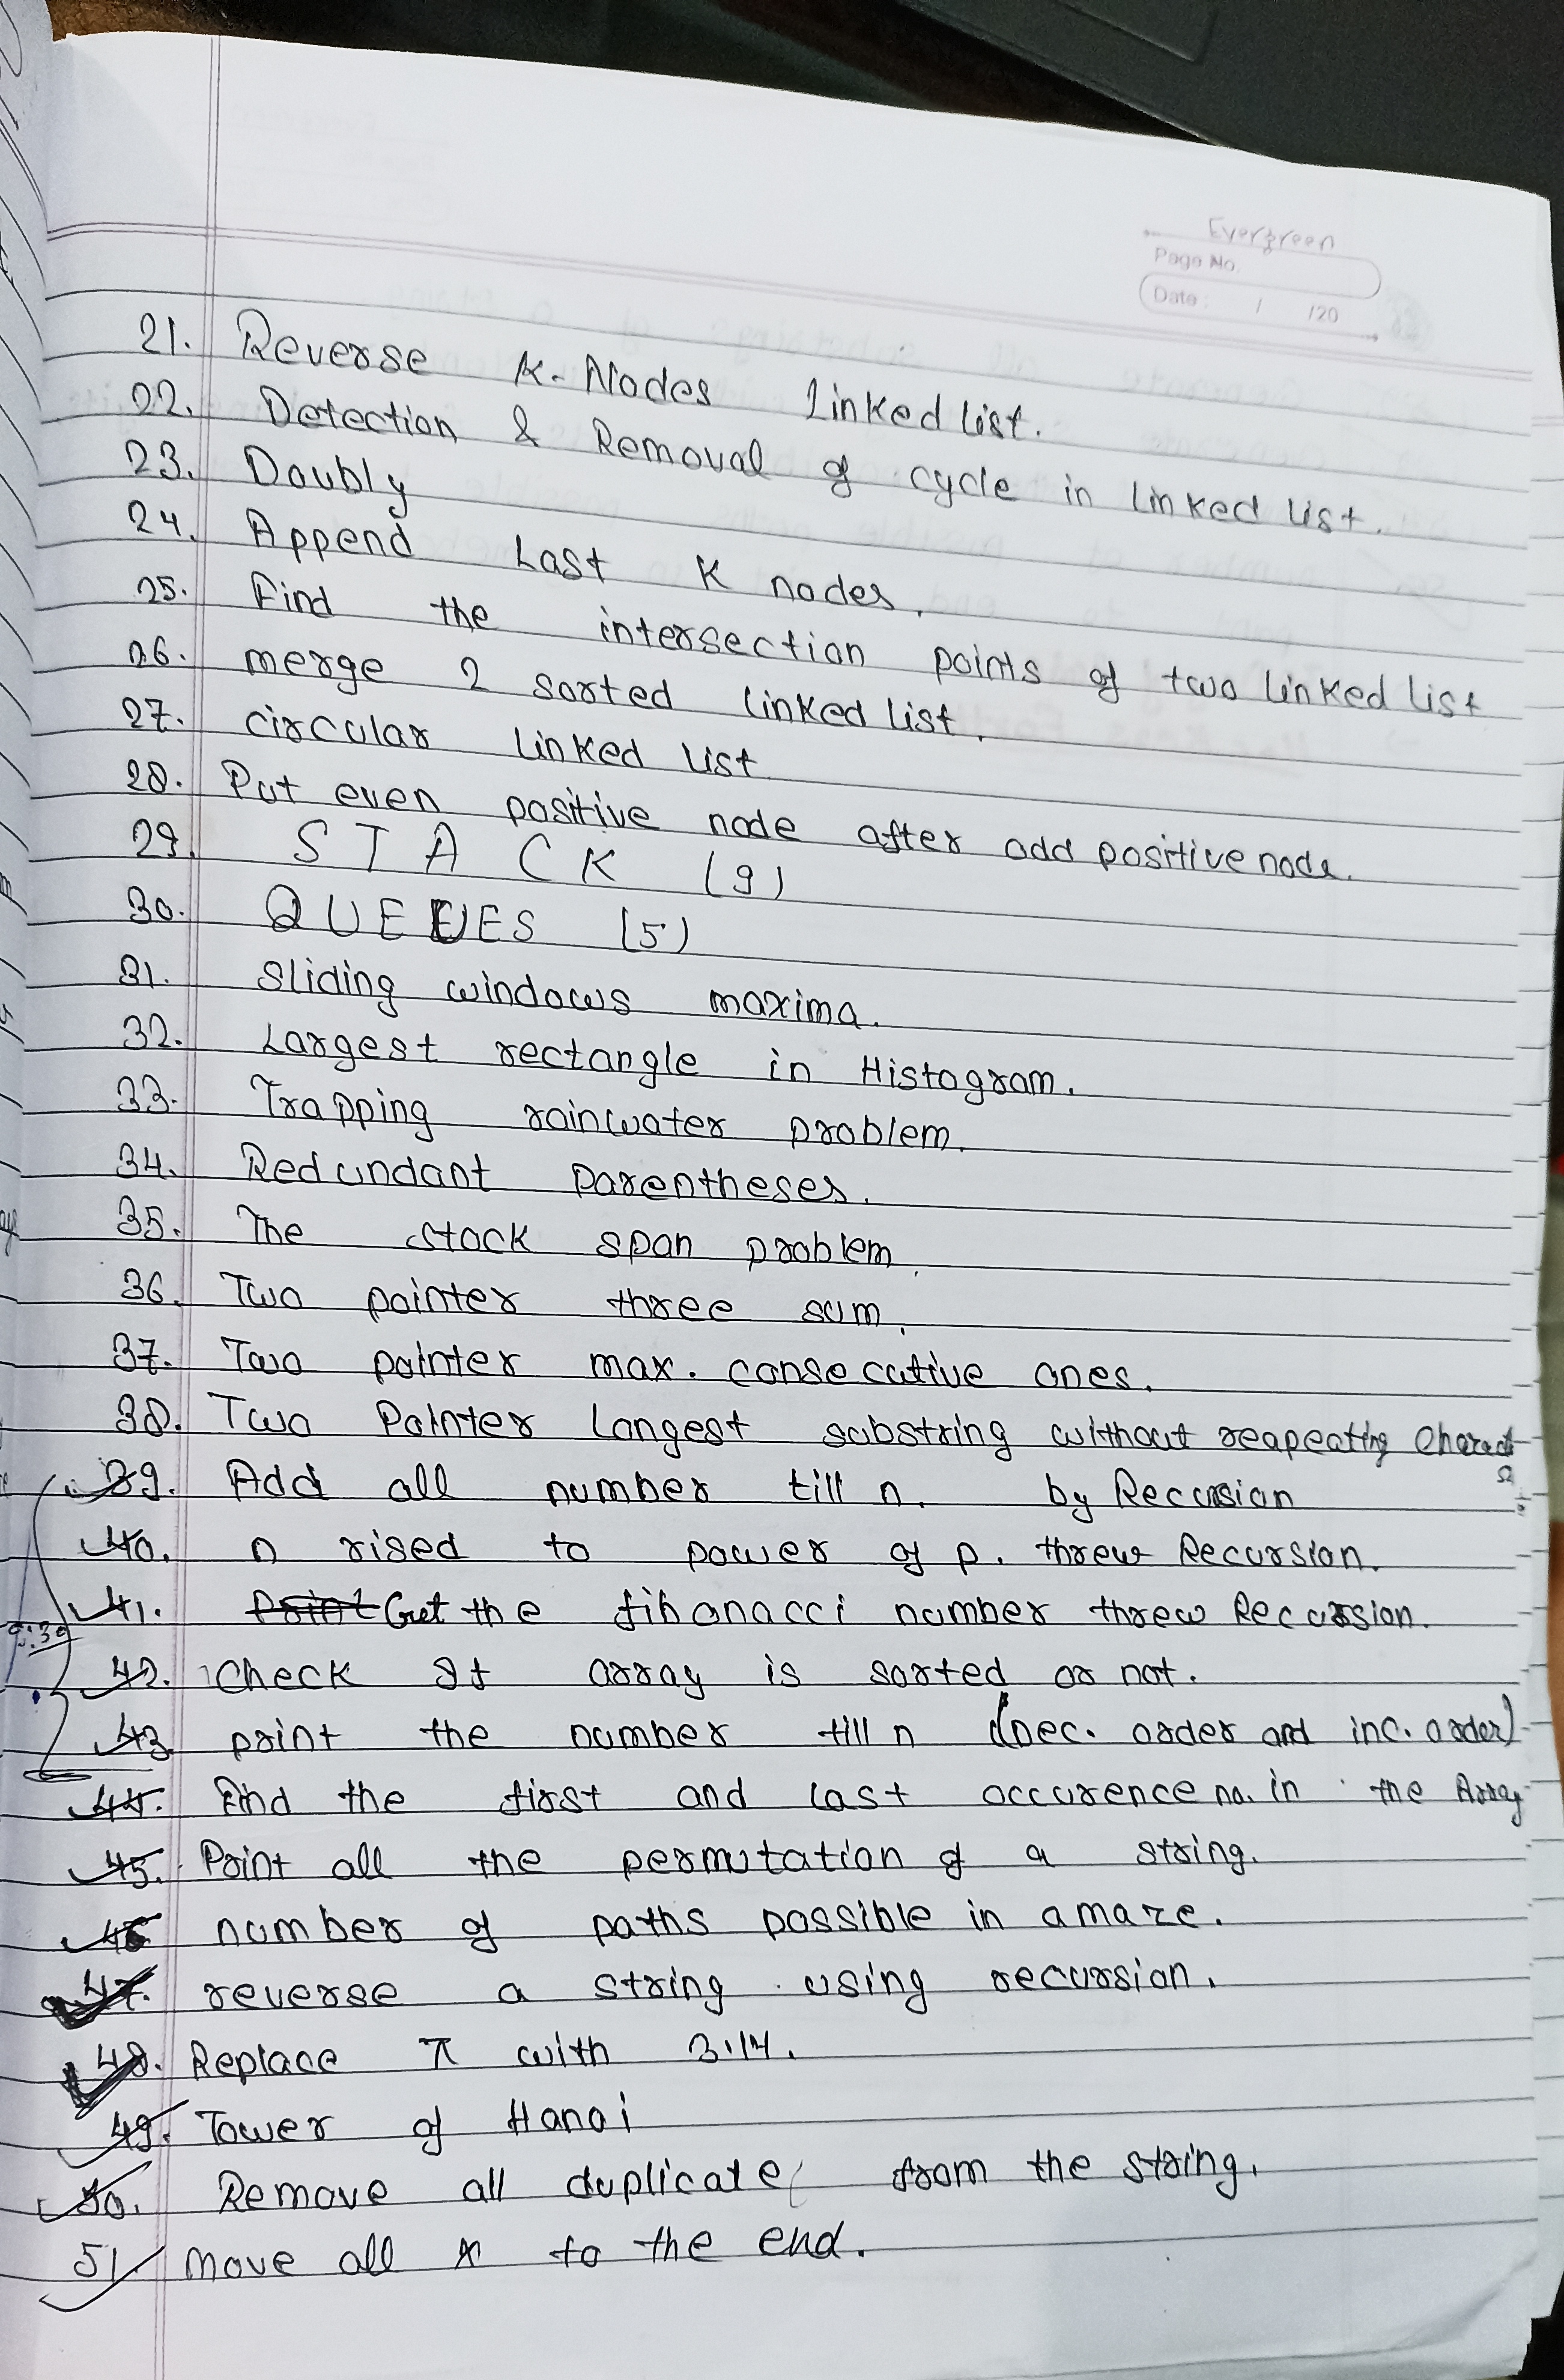 Evergreen
Page No.
Date : / /20
21. Reverse K-Nodes Linked list.
22. Detection & Removal of cycle in linked list.
23. Doubly
24. Append Last K nodes.
25. Find the intersection points of two linked list
26. merge 2 sorted linked list.
27. circular linked list
28. Put even positive node after odd positive node.
29. STACK (9)
30. QUEUES (5)
31. Sliding windows maxima.
32. Largest rectangle in Histogram.
33. Trapping rainwater problem.
34. Redundant Parentheses.
35. The stock span problem.
36. Two pointer three sum.
37. Two pointer max. consecutive ones.
38. Two Pointer Longest substring without reapeating Charact
39. Add all number till n. by Recursion
40. n rised to power of p. threw Recursion.
41. Print Get the fibonacci number threw Recursion.
42. Check If array is sorted or not.
43. print the number till n (Dec. order and inc. order)
44. Find the first and last occurence no. in the Array
45. Print all the permutation of a string.
46 number of paths possible in a maze.
47. reverse a string using recursion.
48. Replace π with 3.14.
49. Tower of Hanoi
50. Remove all duplicate from the string.
51. Move all x to the end.